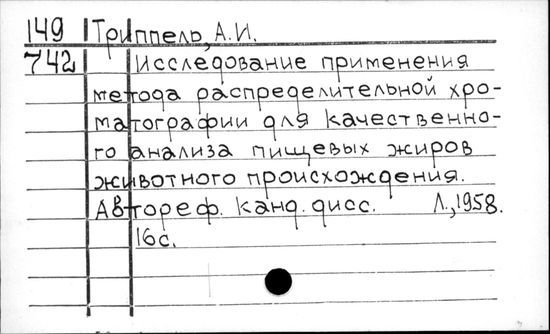 149 Триппель, А.И.
742 Исследование применения
метода распределительной хро-
матографии для качественно-
го анализа пищевых жиров
животного происхождения.
Автореф. канд. дисс. Л., 1958.
16с.